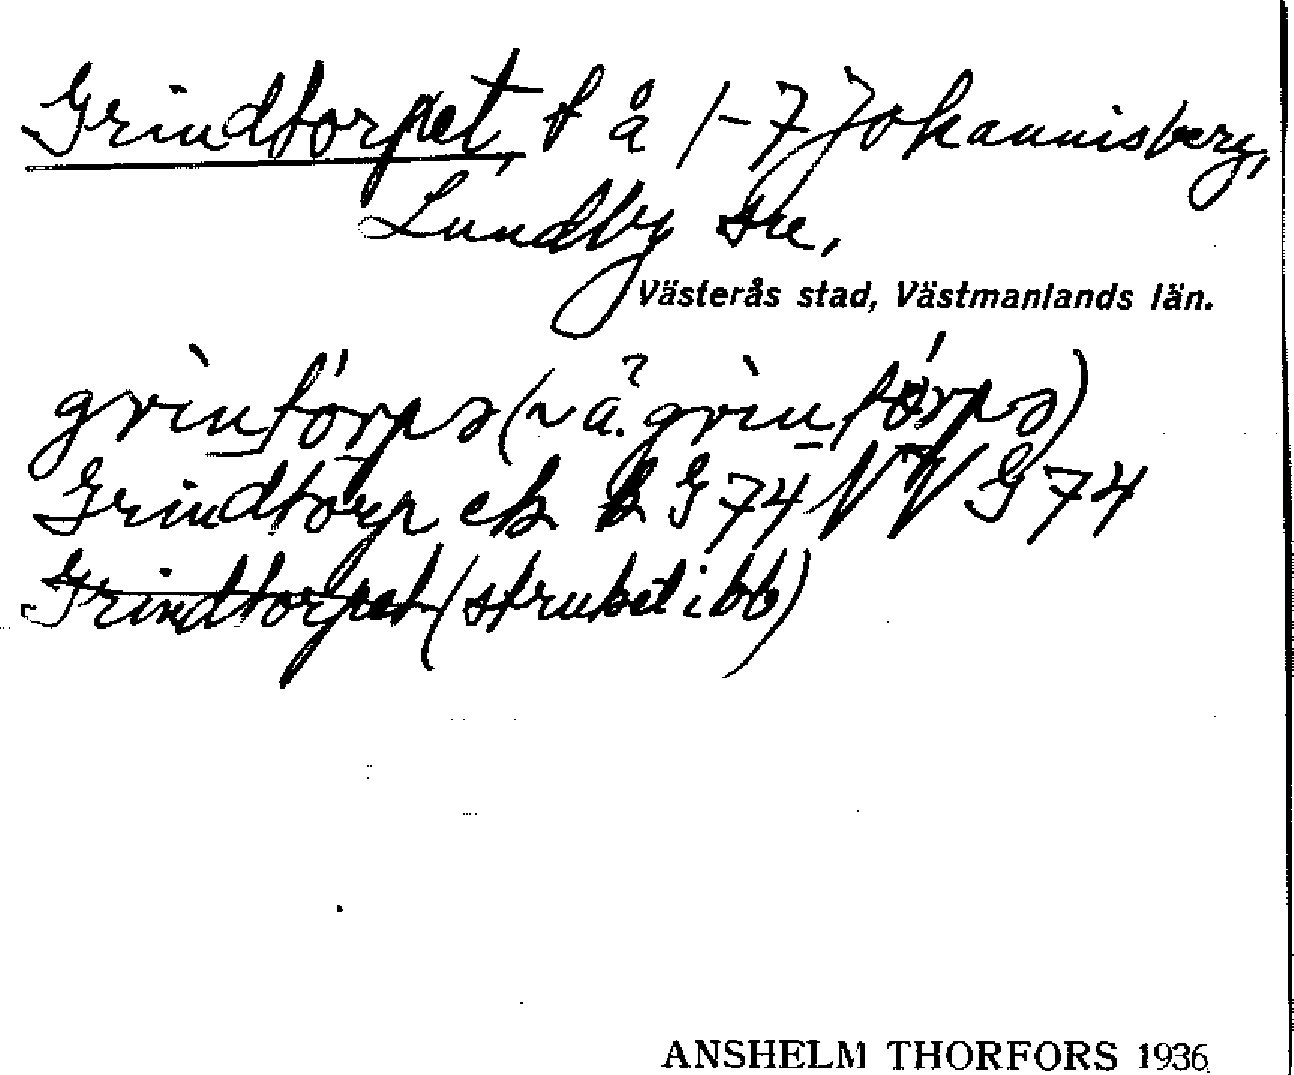 Grindtorpet, t å 1-7 Johannisberg,
Lundby sn,
Västerås stad, Västmanlands län.
grìntórpə (~ å. grìntórpə)
Grindtorp ek k G 74 NV G 74
Grindtorpet (struket i bb)
ANSHELM THORFORS 1936